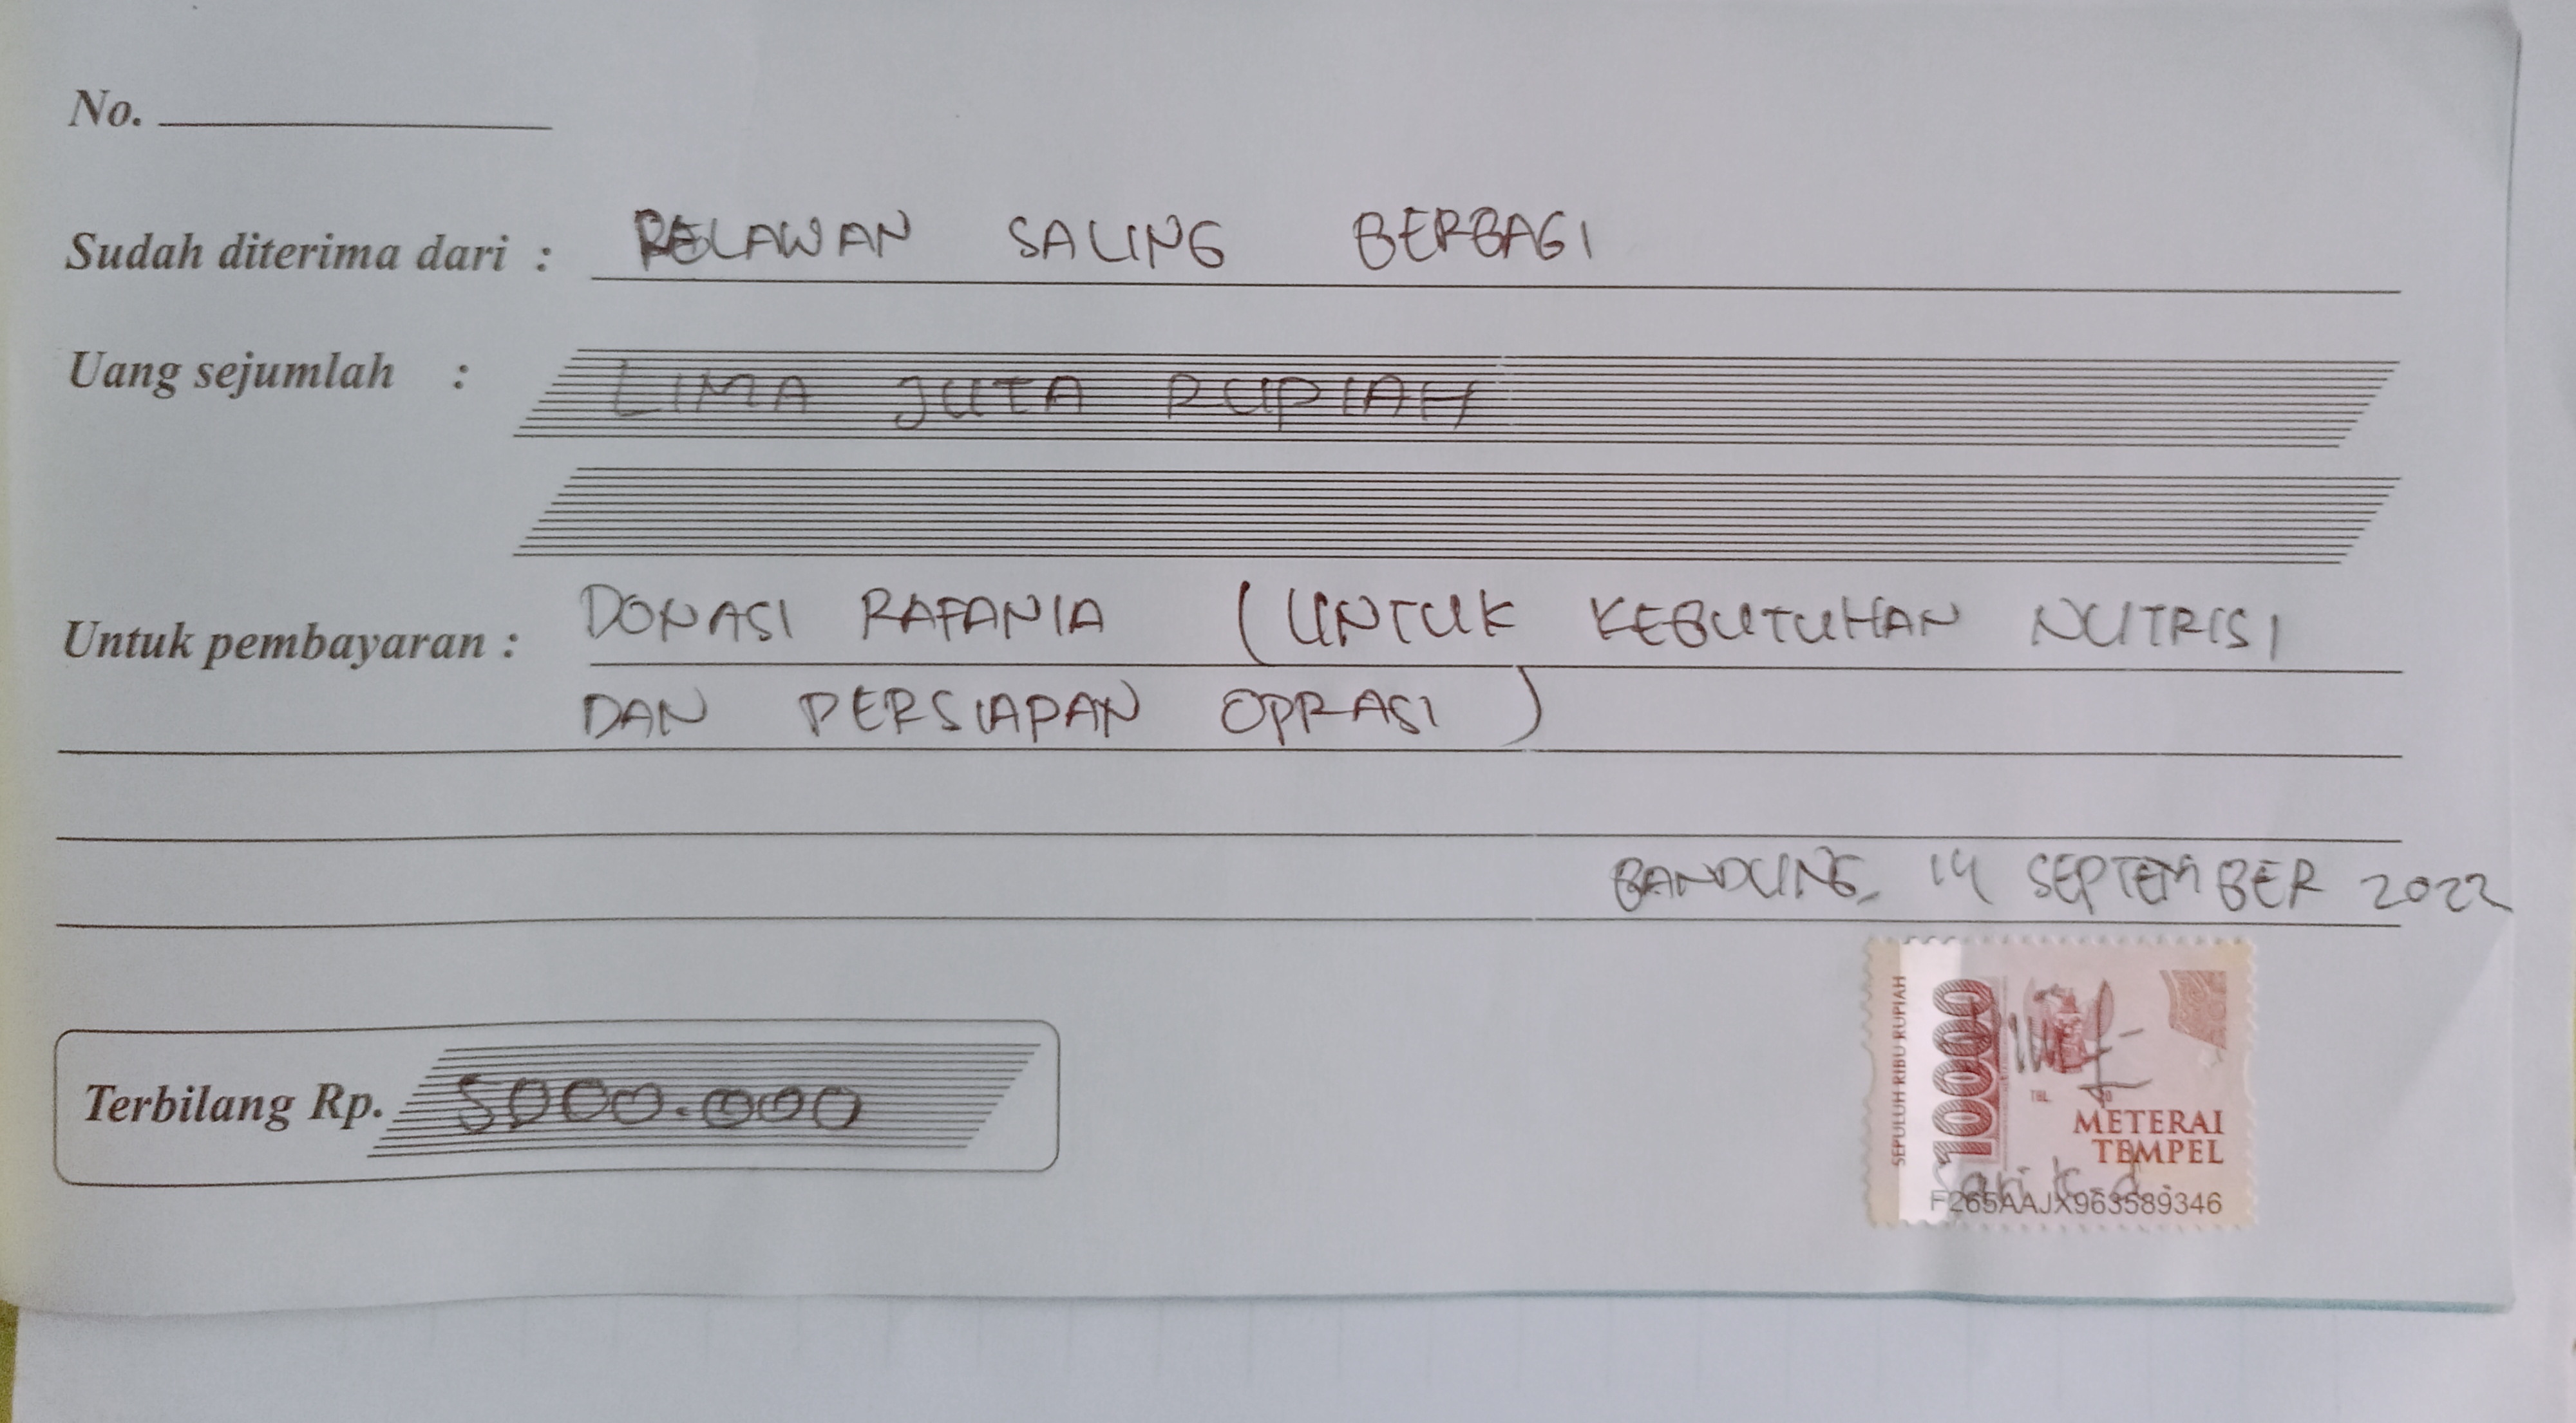 No.
Sudah diterima dari : RELAWAN SALING BERBAGI
Uang sejumlah : LIMA JUTA RUPIAH
Untuk pembayaran : DONASI RAFANIA (UNTUK KEBUTUHAN NUTRISI
DAN PERSIAPAN OPRASI)
BANDUNG, 14 SEPTEMBER 2022
Terbilang Rp. 5000.000
SEPULUH RIBU RUPIAH
10000
METERAI
TEMPEL
F265AAJX963589346